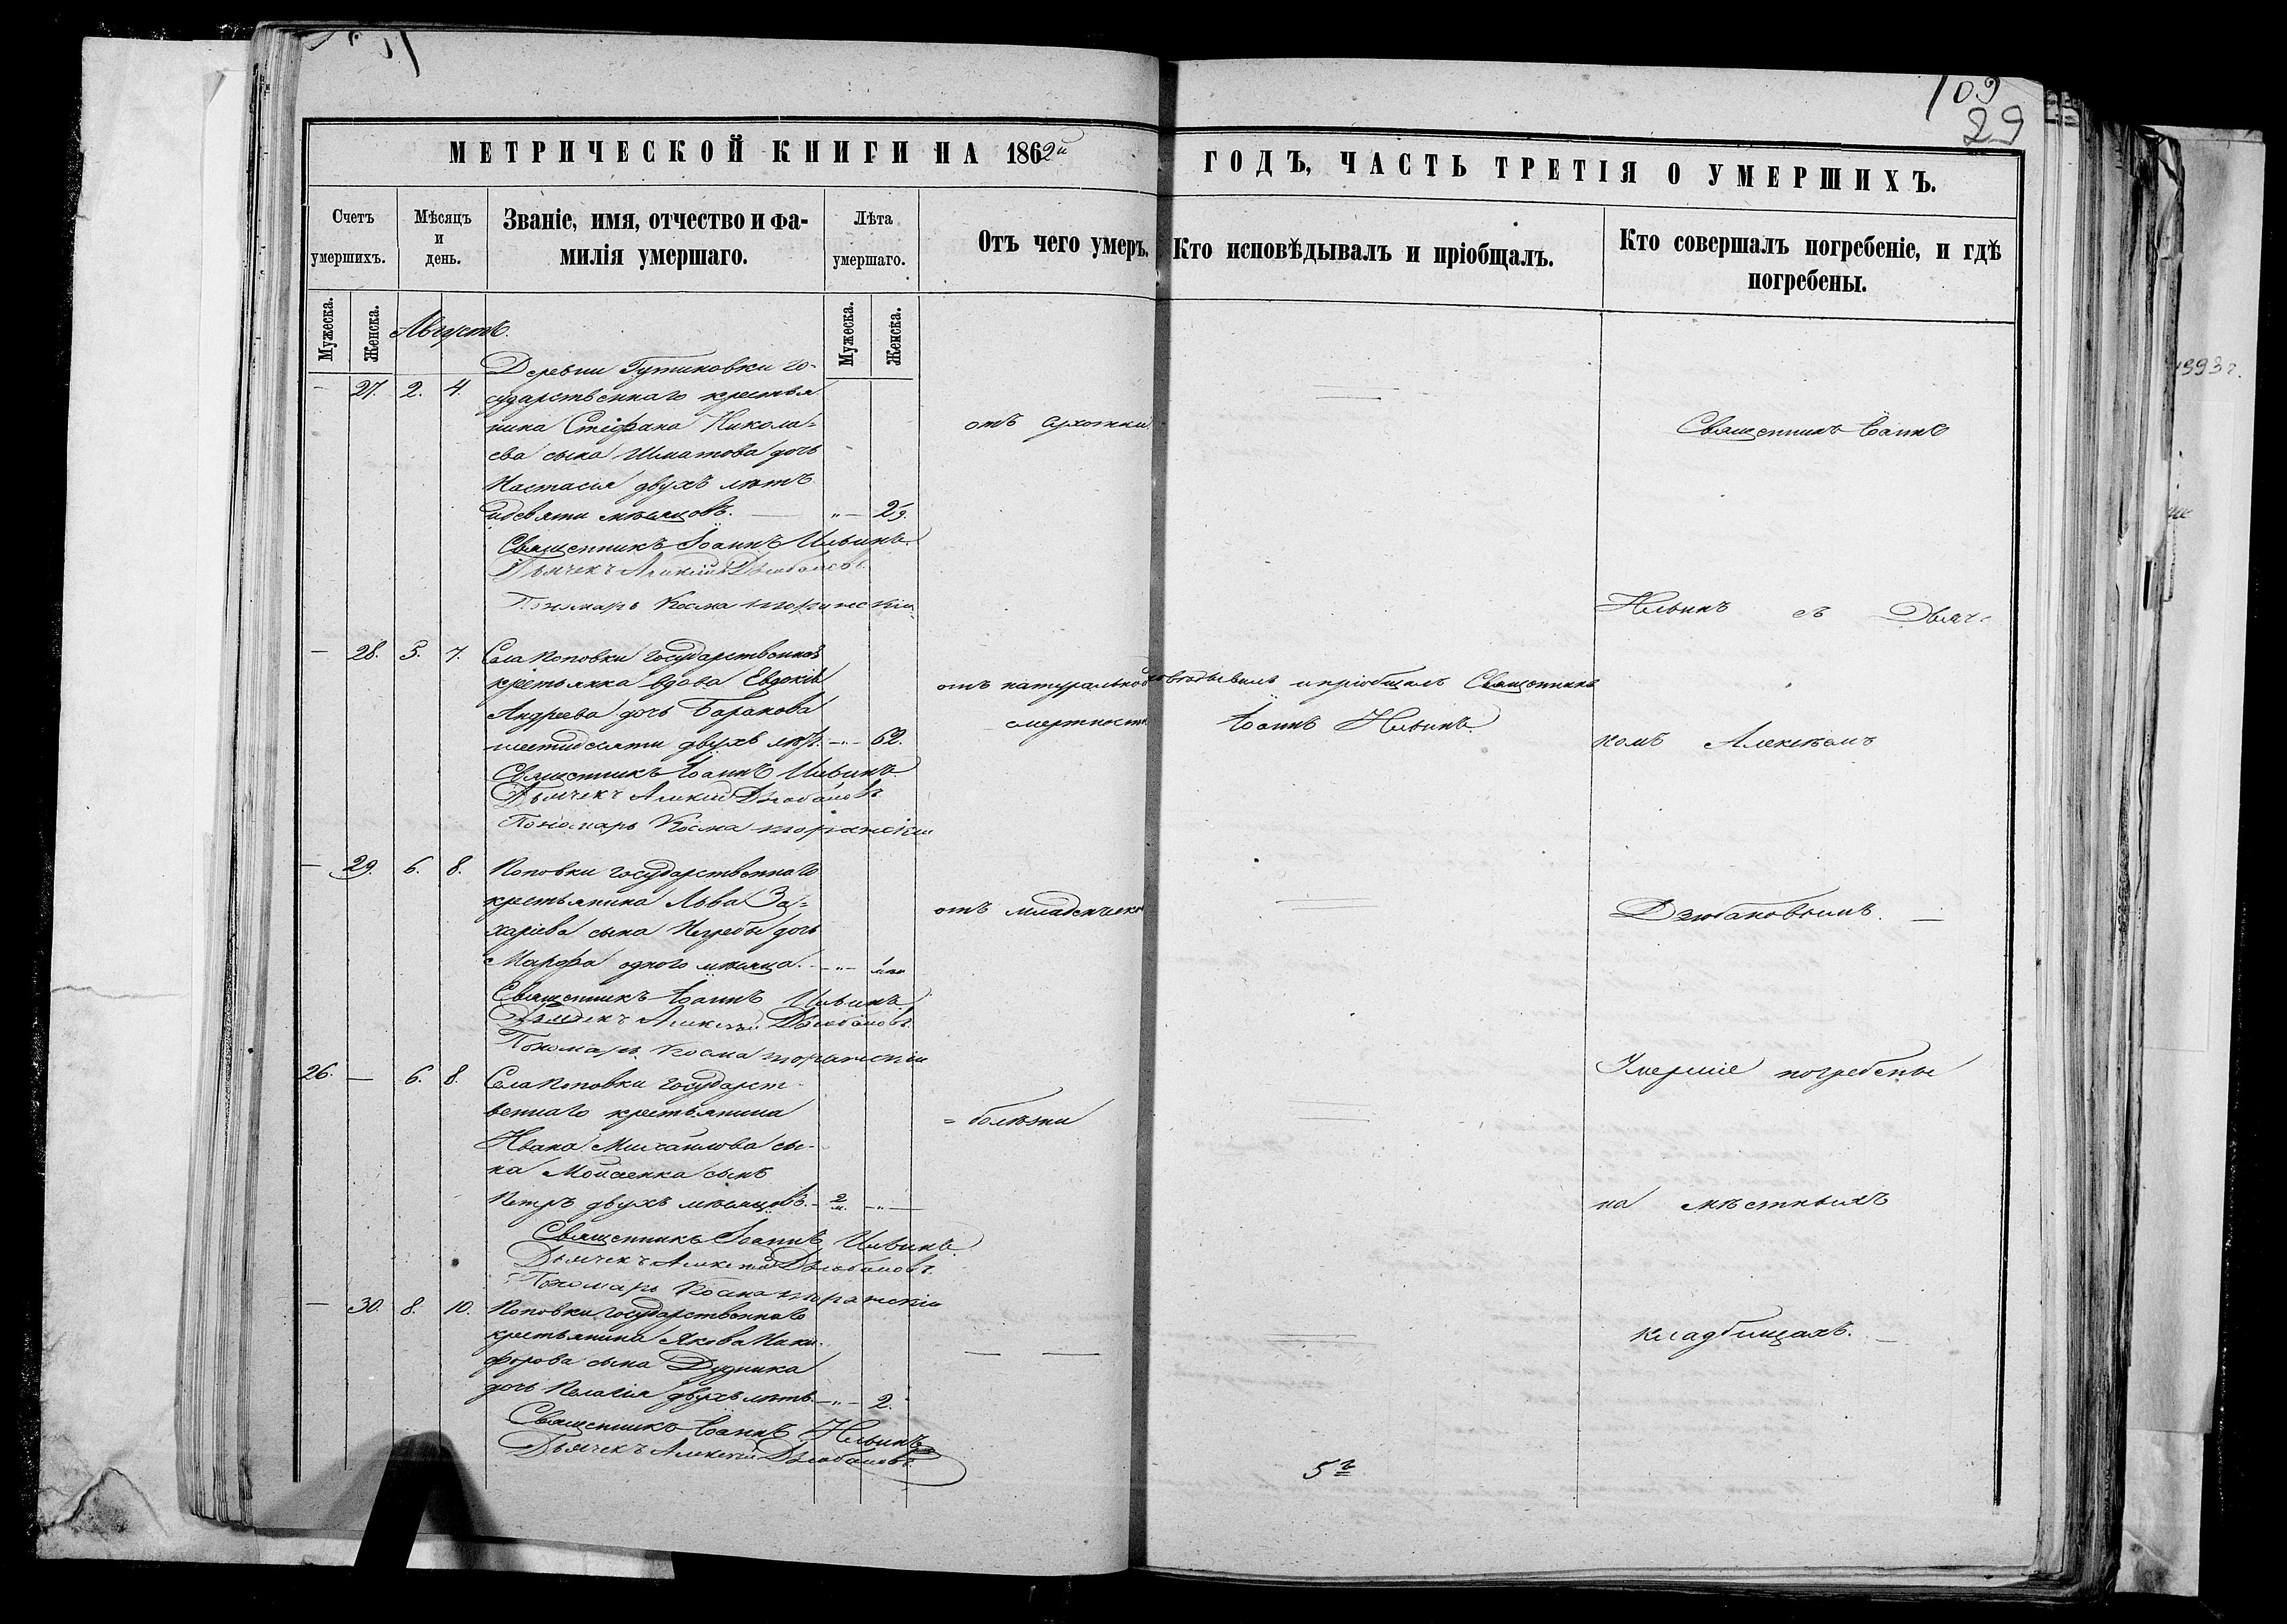 109
29
МЕТРИЧЕСКОЙ КНИГИ НА 1862й
ГОДЪ, ЧАСТЬ ТРЕТІЯ О УМЕРШИХЪ.
Счетъ
умершихъ.
Мѣсяцъ
и
день.
Званіе, имя, отчество и фа-
милія умершаго.
Лѣта
умершаго.
Отъ чего умеръ.
Кто исповѣдывалъ и пріобщалъ.
Кто совершалъ погребеніе, и гдѣ
погребены.
Мужеска.
Женска.
Мужеска.
Женска.
Августъ.
Деревни Гутиковки го-
27. 2. 4. сударственнаго крестья
нина Стефана Никола=
ева сына Шматова дочь
Настасія двухъ лѣтъ
идевяти мѣсяцовъ. 2 9.
отъ сухотки
Священникъ Іоаннъ Ильинъ.
Дьячекъ Алексій Дзюбановъ.
Пономарь Косма
28. 5. 7. Села Поповки государственная
крестьянка вдова Евдокія
Андреева дочь Баранова
шестидесяти двухъ лѣтъ. 62.
отъ натуральной
смертности
исповѣдывалъ ипріобщалъ Священникъ
Іоаннъ Ильинъ.
Священникъ Іоаннъ Ильинъ
Дьячекъ Алексій Дзюбановъ
Пономарь Косма
29. 6. 8. Поповки государственнаго
крестьянина Льва За=
харіева сына Негребы дочь
Марфа одного мѣсяца.
отъ младенческой
Священникъ Іоаннъ Ильинъ
Дьячекъ Алексій Дзюбановъ.
Пономарь Косма
26. 6. 8. Села Поповки государст-
веннаго крестьянина
Ивана Михайлова сы-
на Мойсеенка сынъ
Петръ двухъ мѣсяцовъ. 2 м.
= болѣзни
Священникъ Іоаннъ Ильинъ.
Дьячекъ Алексій Дзюбановъ.
Пономарь Косма
30. 8. 10. Поповки государственнаго
крестьянина Якова Ники-
форова сына Дудника
дочь Пелагія двухъ лѣтъ. 2.
Священникъ Іоаннъ Ильинъ
Дьячекъ Алексій Дзюбановъ
Священникъ Іоаннъ
Ильинъ съ Дьяч-
комъ Алексѣемъ
Дзюбановымъ.
Умершіе погребены
на мѣстныхъ
кладбищахъ.